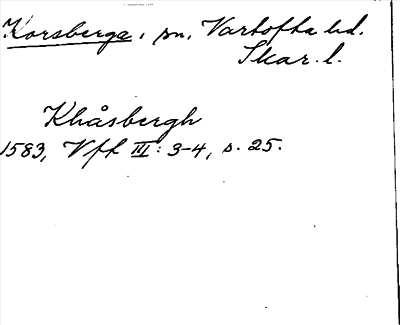 Korsberga, sn, Vartofta hd.
Skar. l.
Khåsbergh
1583, Vfft III: 3-4, s. 25.